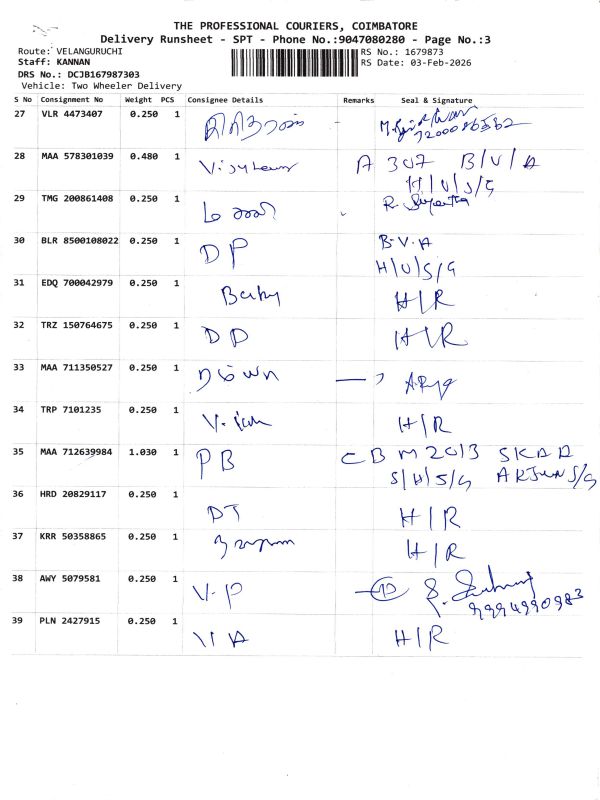 THE PROFESSIONAL COURIERS, COIMBATORE
Delivery Runsheet - SPT - Phone No.:9047080280 - Page No.:3
Route: VELANGURUCHI RS No.: 1679873
Staff: KANNAN RS Date: 03-Feb-2026
DRS No.: DCJB167987303
Vehicle: Two Wheeler Delivery
S No Consignment No Weight PCS Consignee Details Remarks Seal & Signature
27 VLR 4473407 0.250 1
28 MAA 578301039 0.480 1 A 307 B/V/A
H/U/S/G
29 TMG 200861408 0.250 1
30 BLR 8500108022 0.250 1 DP B.V.A
H/U/S/G
31 EDQ 700042979 0.250 1 H/R
32 TRZ 150764675 0.250 1 DD H/R
33 MAA 711350527 0.250 1
34 TRP 7101235 0.250 1 H/R
35 MAA 712639984 1.030 1 PB CBM 2013 SKDA
S/H/S/G ARJUN S/G
36 HRD 20829117 0.250 1 DJ H/R
37 KRR 50358865 0.250 1 H/R
38 AWY 5079581 0.250 1 V.P
9994990983
39 PLN 2427915 0.250 1 VA H/R